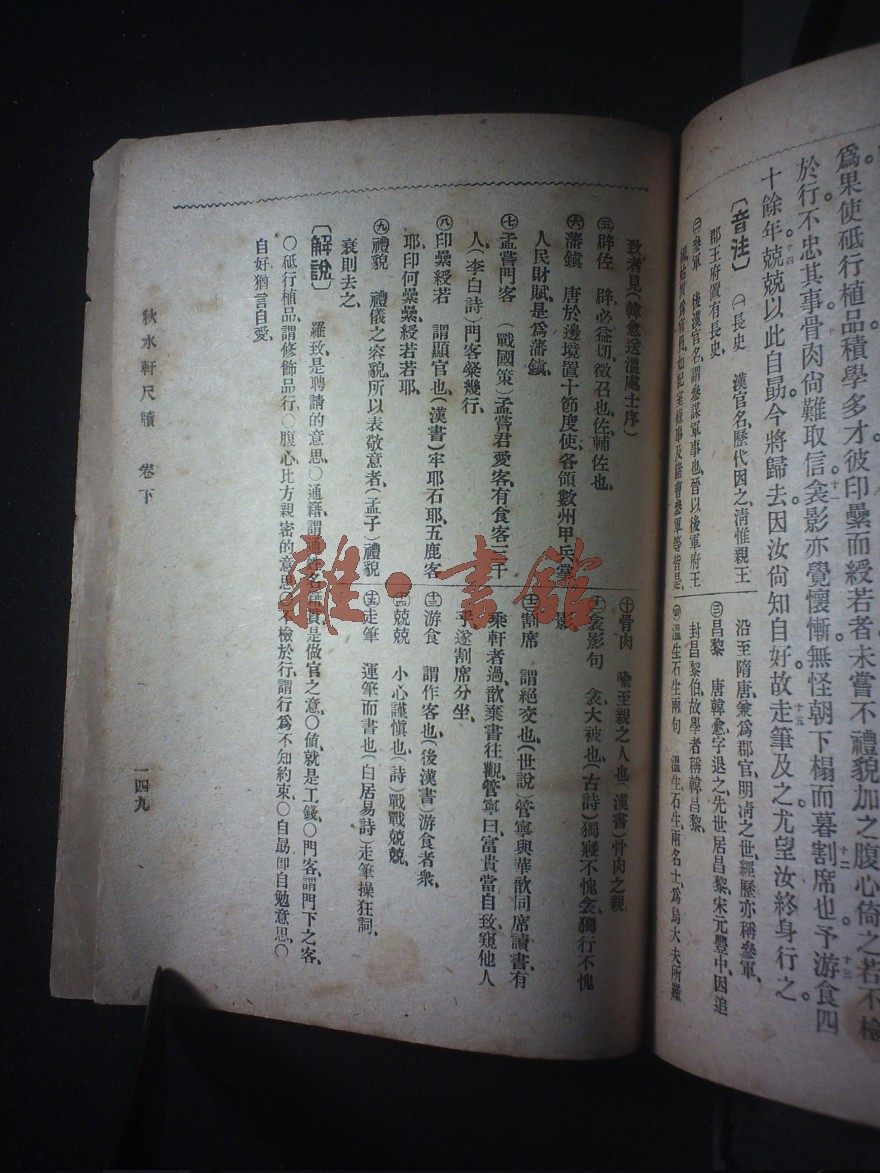 爲果使砥行植品積學多才彼印纍而綬若者未嘗不禮貌加之腹心倚之若不檢
於行不忠其事骨肉尚難取信衾影亦覺懷慚無怪朝下榻而暮割席也予游食四
十餘年兢兢以此自勗今將歸去因汝尚知自好故走筆及之尤望汝終身行之
〔音注〕 ㊀長史 漢官名歷代因之清惟親王
郡王府置有長史
㊁參軍 後漢官名謂參謀軍事也晉以後軍府王
沿至隋唐兼爲郡官明清之世經歷亦稱參軍
㊂昌黎 唐韓愈字退之先世居昌黎宋元豐中因追
封昌黎伯故學者稱韓昌黎
㊃溫生石生兩句 溫生石生兩名士爲烏大夫所羅
致者見(韓愈送溫處士序)
㊄辟佐 辟必益切徵召也佐輔佐也
㊅藩鎭 唐於邊境置十節度使各領數州甲兵掌
人民財賦是爲藩鎭
㊆孟嘗門客 (戰國策)孟嘗君愛客有食客三千
人(李白詩)門客粲幾行
㊇印纍綬若 謂顯官也(漢書)牢耶石耶五鹿客
耶印何纍纍綬若若耶
㊈禮貌 禮儀之容貌所以表敬意者(孟子)禮貌
衰則去之
㊉骨肉 喻至親之人也(漢書)骨肉之親
衾影句 衾大被也(古詩)獨寢不愧衾獨行不愧
影
割席 謂絕交也(世說)管寧與華歆同席讀書有
乘軒者過歆棄書往觀管寧曰富貴當自致窺他人
乎遂割席分坐
游食 謂作客也(後漢書)游食者衆
兢兢 小心謹愼也(詩)戰戰兢兢
走筆 運筆而書也(白居易詩)走筆操狂詞
〔解說〕 羅致是聘請的意思〇通籍謂通姓名籍貫是做官之意〇偵就是工錢〇門客謂門下之客
〇砥行植品謂修飾品行〇腹心比方親密的意思〇不檢於行謂行爲不知約束〇自勗卽自勉意思〇
自好猶言自愛
秋水軒尺牘 卷下
一四九
雜·書館